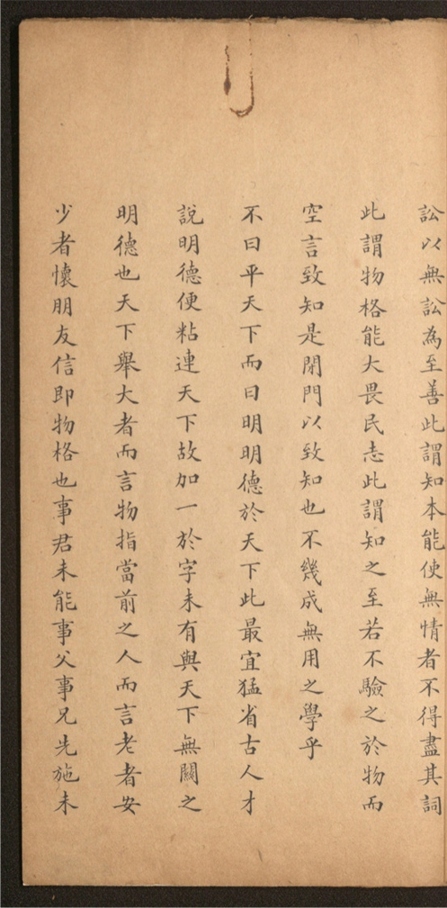 訟以無訟為至善此謂知本能使無情者不得盡其詞
此謂物格能大畏民志此謂知之至若不驗之於物而
空言致知是閉門以致知也不幾成無用之學乎
不曰平天下而曰明明德於天下此最宜猛省古人才
說明德便粘連天下故加一於字未有與天下無關之
明德也天下舉大者而言物指當前之人而言老者安
少者懷朋友信即物格也事君未能事父事兄先施未